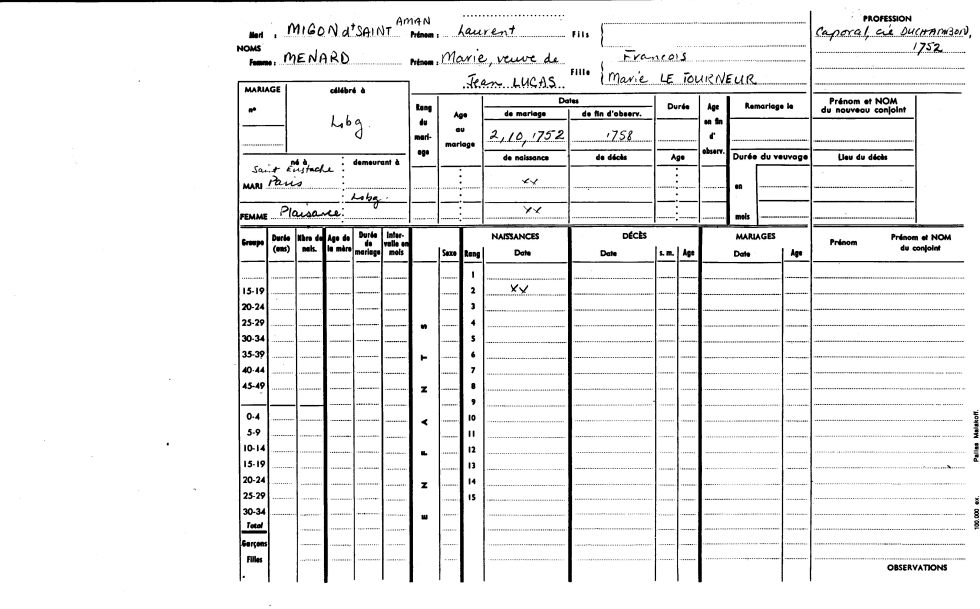 Mari : MIGON d'SAINT AMAN Prénom : Laurent Fils
NOMS
Femme : MENARD Prénom : Marie, veuve de Jean LUCAS Fille { Francois
Marie LE TOURNEUR
PROFESSION
Caporal, cie DUCHAMBON, 1752
MARIAGE célébré à
n° Lsbg.
né à demeurant à
Saint Eustache
MARI Paris
Lsbg.
FEMME Plaisance
Rang du mari- age
Age au mariage
Dates
de mariage de fin d'observ.
2,10,1752 1758
de naissance de décès
xx
xx
Durée
Age
Age en fin d' observ.
Remariage le
Durée du veuvage
en
mois
Prénom et NOM du nouveau conjoint
Lieu du décès
Groupe Durée (ans) Nbre de nais. Age de la mère Durée de mariage Inter- valle en mois Sexe Rang NAISSANCES Date DÉCÈS Date s. m. Age MARIAGES Date Age Prénom Prénom et NOM du conjoint
1
15-19 2 xx
20-24 3
25-29 S 4
30-34 5
35-39 T 6
40-44 7
45-49 N 8
9
0-4 A 10
5-9 11
10-14 F 12
15-19 13
20-24 N 14
25-29 15
30-34 E
Total
Garçons
Filles
OBSERVATIONS
100.000 ex. Pairies Malakoff.